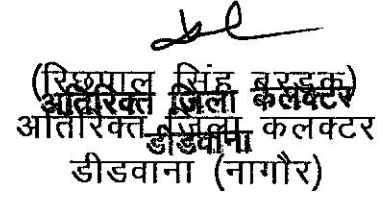 (रिछपाल सिंह बरडक)
अतिरिक्त जिला कलक्टर
अतिरिक्त जिला कलक्टर
डीडवाना
डीडवाना (नागौर)